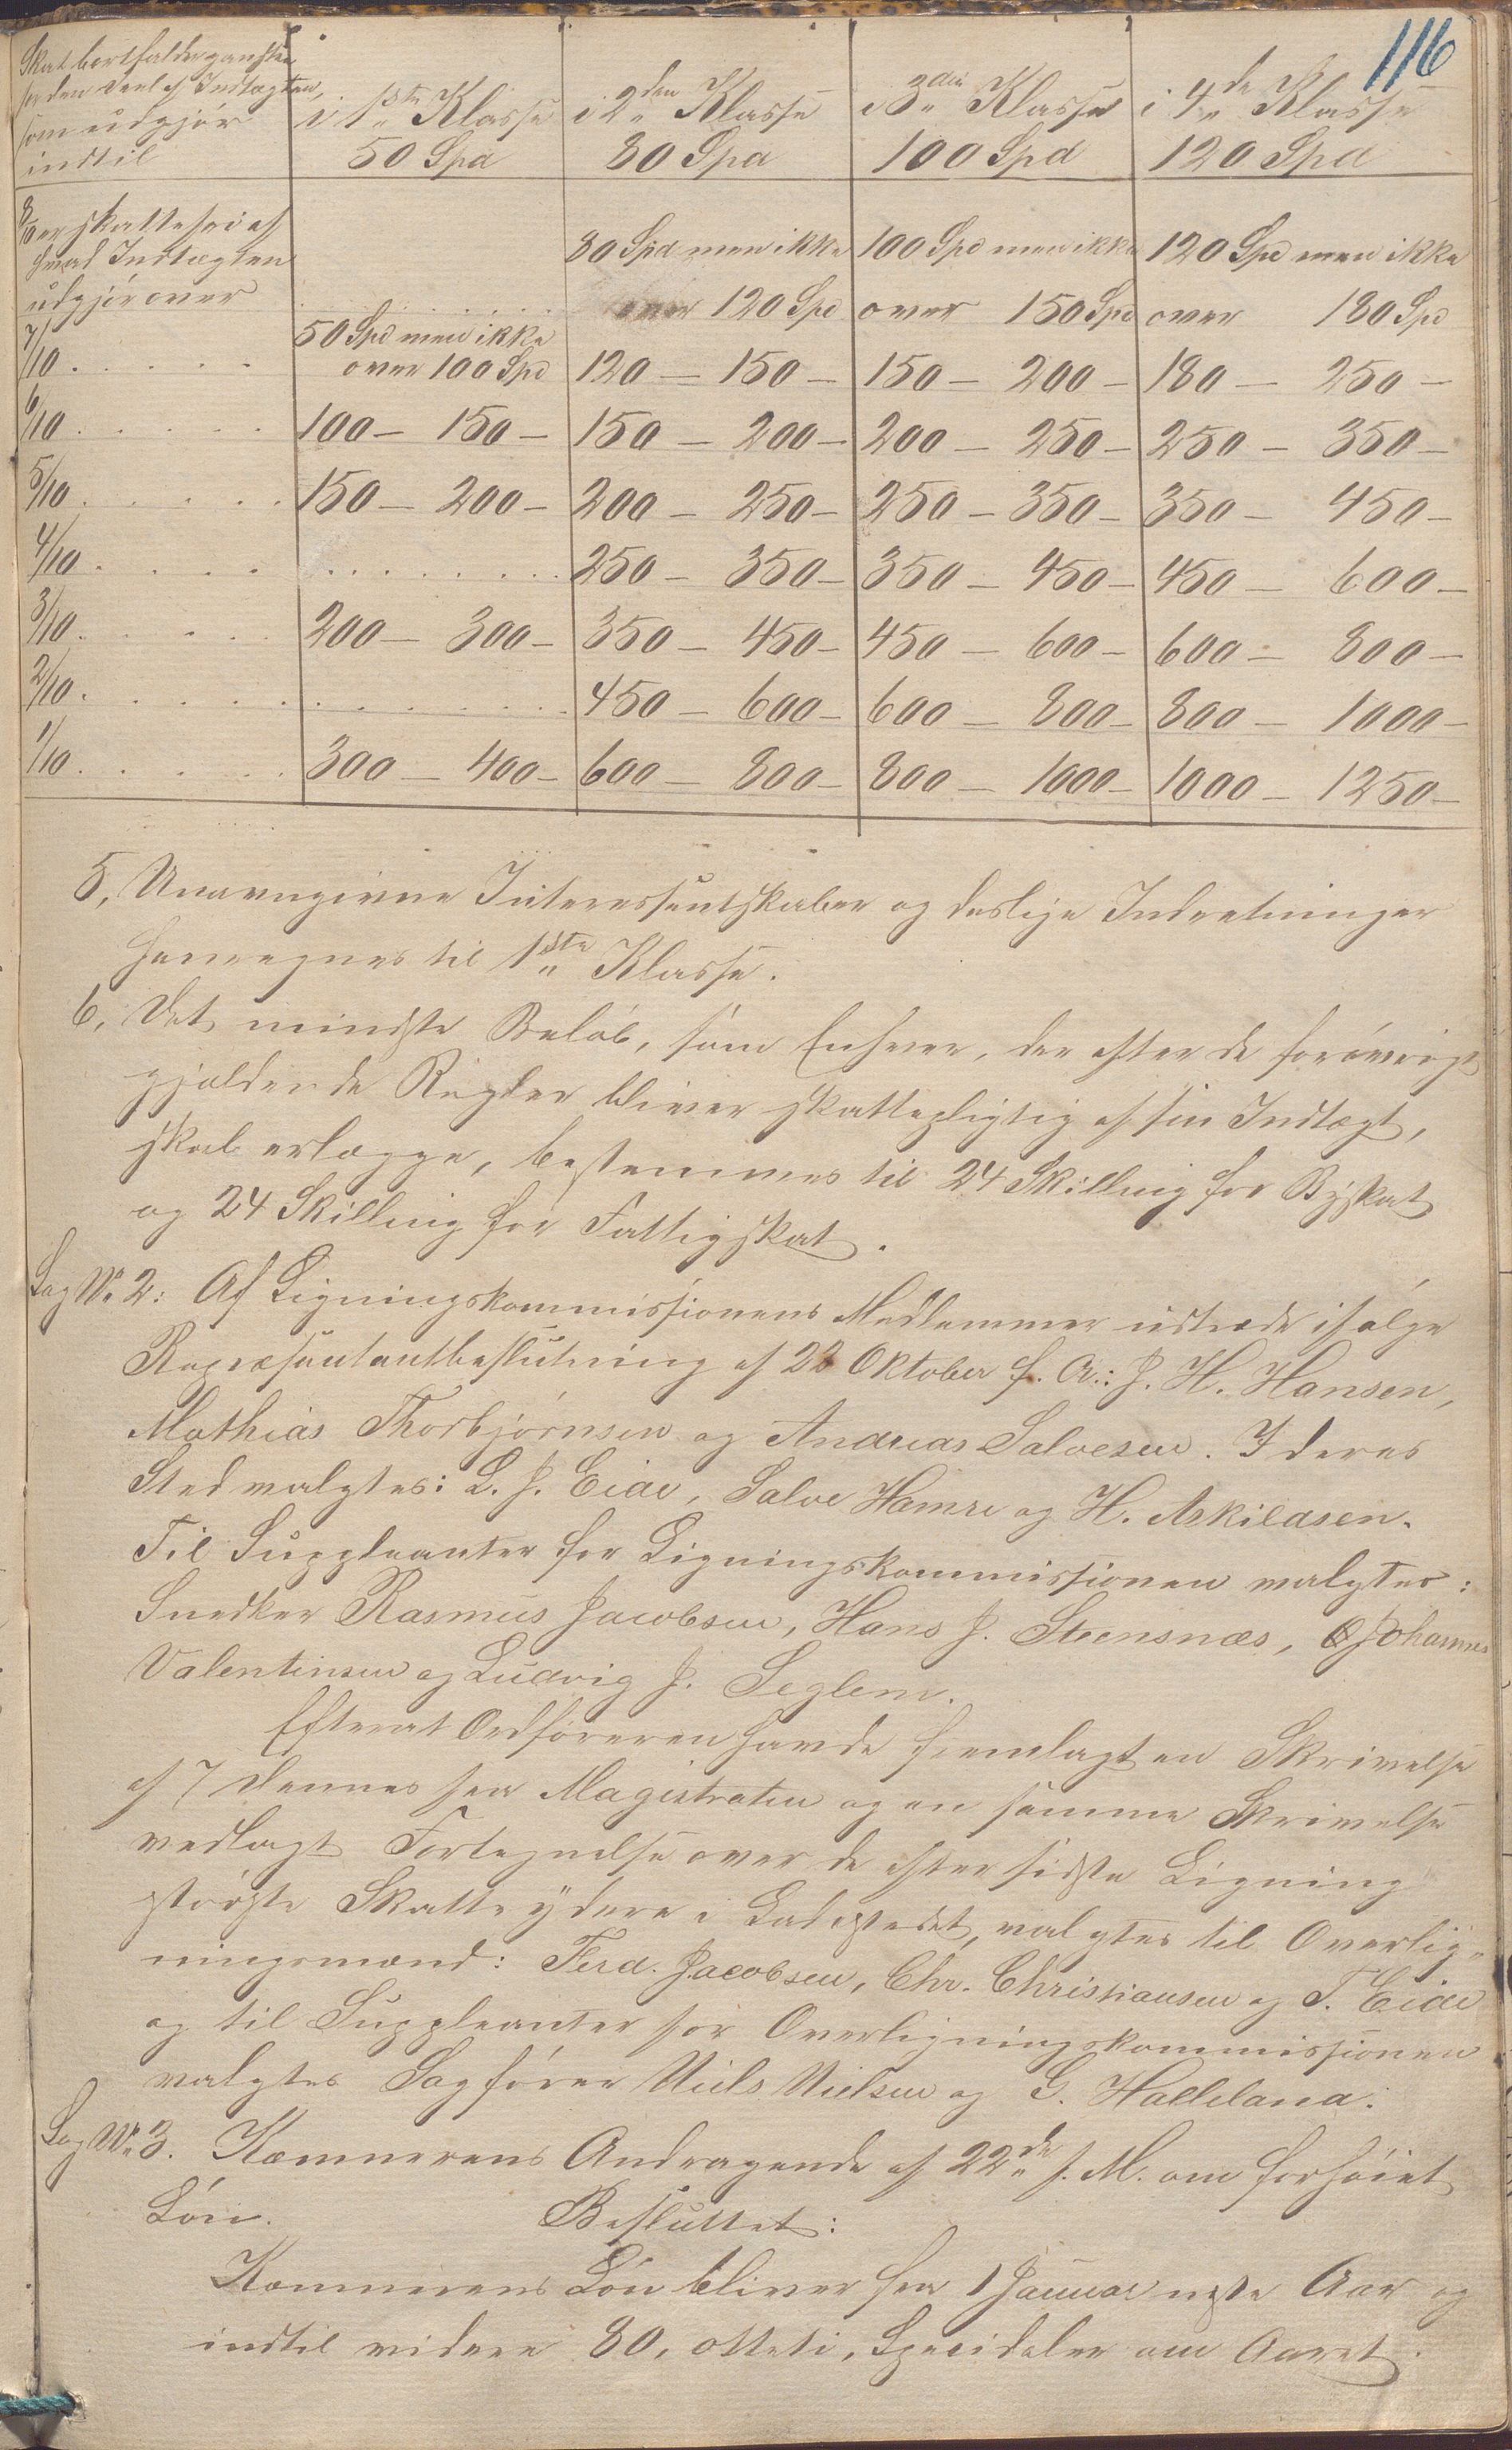 116
Skat bortfalder ganske
for den Deel af Indtægten,
som udgjør
indtil
i 1ste Klasse
50 Spd
i 2den Klasse
80 Spd
i 3die Klasse
100 Spd
i 4de Klasse
120 Spd
8/10 er skattefri af
hvad Indtægten
udgjør over . . . . . . . .
80 Spd men ikke
over 120 Spd
100 Spd men ikke
over 150 Spd
120 Spd men ikke
over 180 Spd
7/10 . . . . . 50 Spd men ikke
over 100 Spd 120 — 150 — 150 — 200 — 180 — 250 —
6/10 . . . . . 100 — 150 — 150 — 200 — 200 — 250 — 250 — 350 —
5/10 . . . . . 150 — 200 — 200 — 250 — 250 — 350 — 350 — 450 —
4/10 . . . . . . . . . . . . 250 — 350 — 350 — 450 — 450 — 600 —
3/10 . . . . . 200 — 300 — 350 — 450 — 450 — 600 — 600 — 800 —
2/10 . . . . . . . . . . . . 450 — 600 — 600 — 800 — 800 — 1000 —
1/10 . . . . . 300 — 400 — 600 — 800 — 800 — 1000 — 1000 — 1250 —
5, Unavngivne Interessentskaber og deslige Indretninger
henregnes til 1ste Klasse.
6, Det mindste Beløb, som Enhver, der efter de forøvrigt
gjældende Regler bliver skattepligtig af sin Indtægt,
skal erlægge, bestemmes til 24 Skilling for Byskat
og 24 Skilling for Fattigskat.
Sag No 2: Af Ligningskommissionens Medlemmer udtræde ifølge
Repræsentantbeslutning af 22 Oktober f. A.: J. H. Hansen,
Mathias Thorbjørnsen og Andreas Salvesen. I deres
Sted valgtes: L. J. Eide, Salve Hamre og H. Askildsen.
Til Suppleanter for Ligningskommissionen valgtes:
Snedker Rasmus Jacobsen, Hans J. Steensnæs, Johannes
Valentinsen og Ludvig J. Seglem.
Efterat Ordføreren havde fremlagt en Skrivelse
af 7 dennes fra Magistraten og en samme Skrivelse
vedlagt Fortegnelse over de efter sidste Ligning
største Skatteydere i Ladestedet, valgtes til Overlig-
ningsmænd: Ferd. Jacobsen, Chr. Christiansen og T. Eide
og til Suppleanter for Overligningskommissionen
valgtes Sagfører Niels Nielsen og G. Halleland.
Sag No 3. Kæmnerens Andragende af 22de f. M. om forhøiet
Løn. Besluttet:
Kæmnerens Løn bliver fra 1 Januar næste Aar og
indtil videre 80, otteti, Speidaler om Aaret.